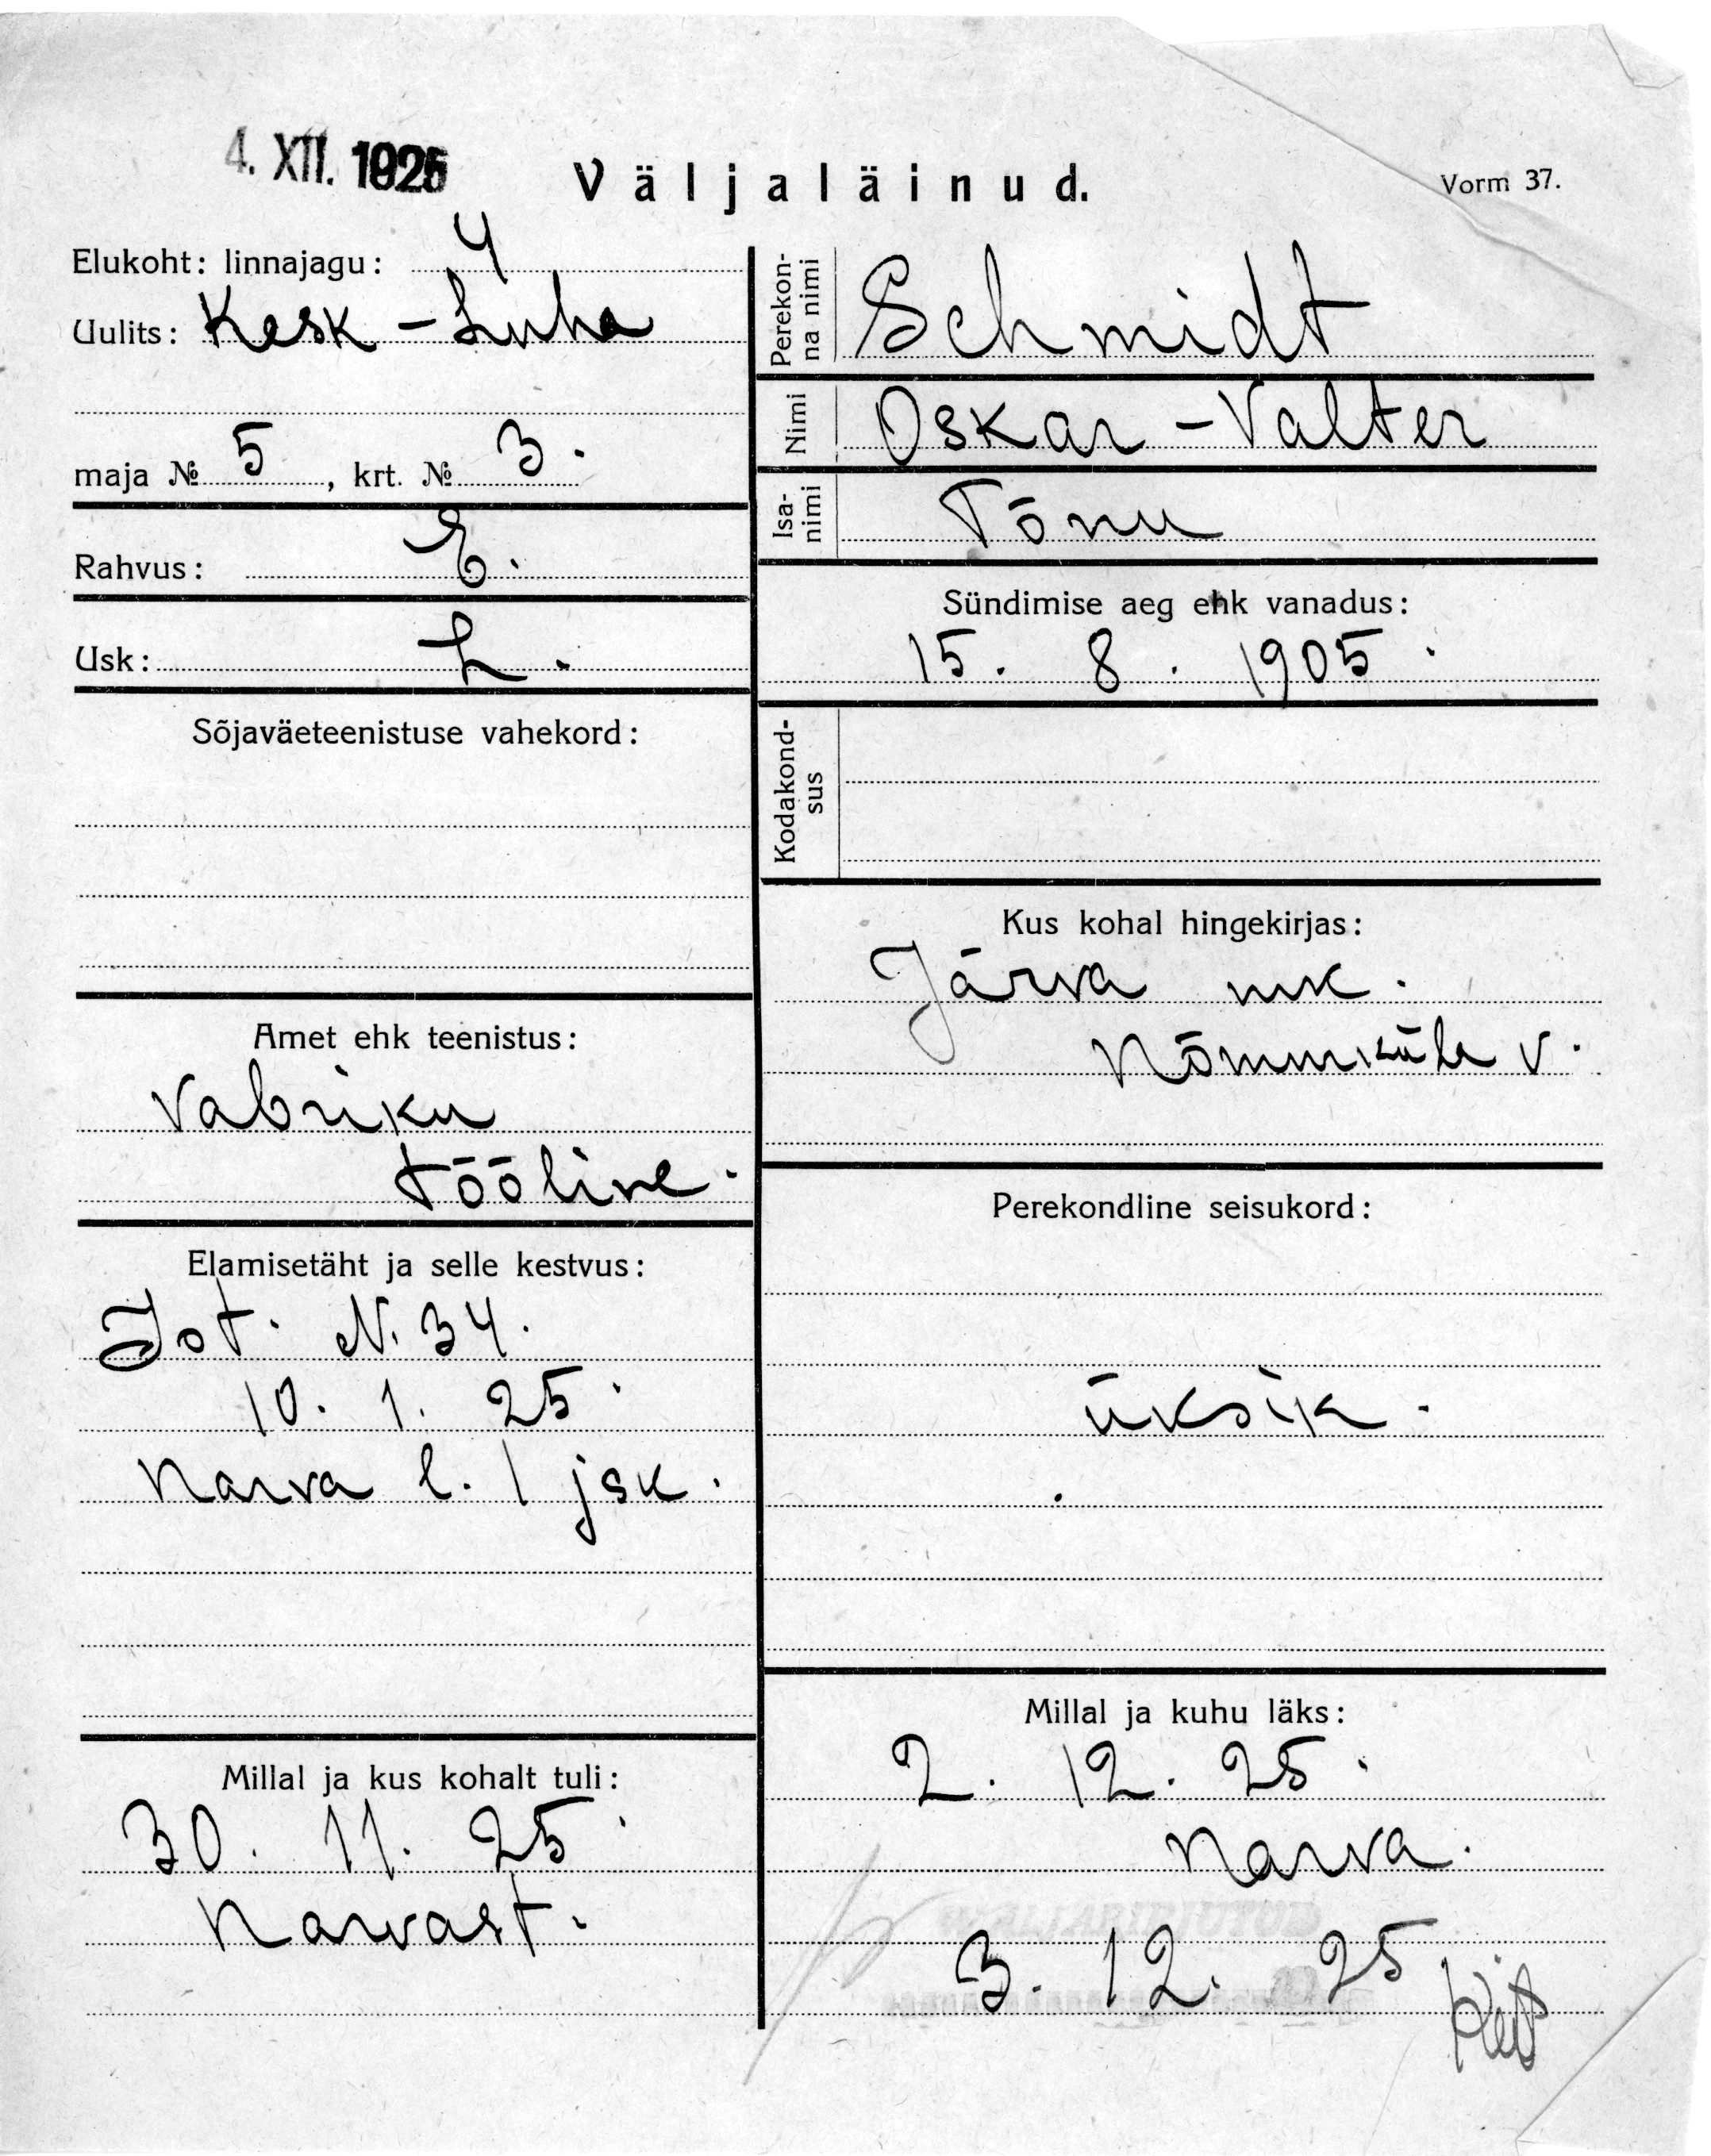 4. XII. 1925
Väljaläinud.
Vorm 37.
Elukoht: linnajagu: 4
Uulits: Kesk-Luha
maja № 5, krt. № 3.
Rahvus: E.
Usk: L.
Sõjaväeteenistuse vahekord:
Amet ehk teenistus:
Vabriku
tööline.
Elamisetäht ja selle kestvus:
Isot. N. 34.
10. 1. 25.
Narva l. 1 jsk.
Millal ja kus kohalt tuli:
30. 11. 25.
Narvast.
Perekon-
na nimi
Schmidt
Nimi
Oskar-Valter
Isa-
nimi
Tõnu
Sündimise aeg ehk vanadus:
15. 8. 1905.
Kodakond-
sus
Kus kohal hingekirjas:
Järva mk.
Nõmmküla v.
Perekondline seisukord:
üksik.
Millal ja kuhu läks:
2. 12. 25.
Narva.
3. 12. 25